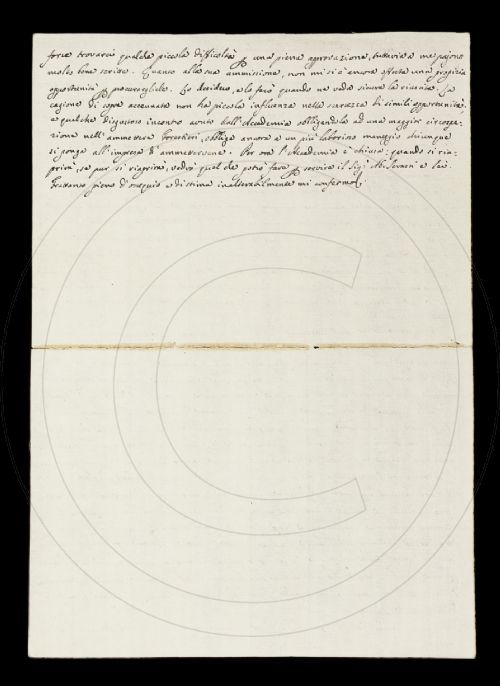 forse trovarci qualche piccola difficoltà p una piena approvazione, tuttavia a me pajono
molto bene scritte. Quanto alla sua ammissione, non mi si è ancora offerta una propizia
opportunità p procurargliela. Lo desidero, e lo farò quando ne veda sicura la riuscita. La
cagione di sopra accennata non ha piccola influenza nella scarsezza di simili opportunità,
e qualche disgustoso incontro avuto dall'Accademia obbligandola ad una maggior circospe-
zione nell'ammettere Forestieri, obbliga ancora a un più laborioso maneggio chiunque
si ponga all'impresa d'ammissione. Per ora l'Accademia è chiusa: quando si ria-
prirà, se pur si riaprirà, vedrò quel che potrò fare p servire il Sig. Ab. e Lei.
Frattanto pieno d'ossequio e di stima inalterabilmente mi confermo.